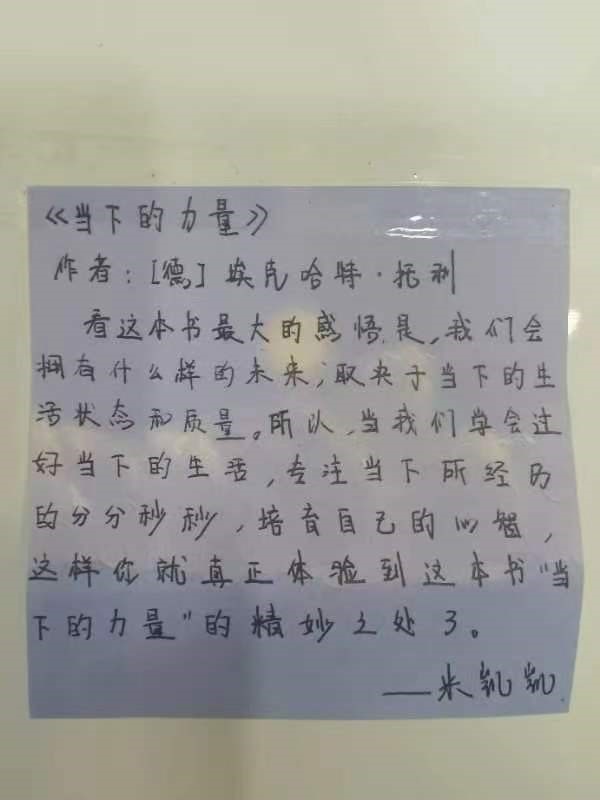 《当下的力量》
作者：[德]埃克哈特·托利
看这本书最大的感悟是，我们会
拥有什么样的未来，取决于当下的生
活状态和质量。所以，当我们学会过
好当下的生活，专注当下所经历
的分分秒秒，培育自己的心智，
这样你就真正体验到这本书“当
下的力量”的精妙之处了。
——米凯凯